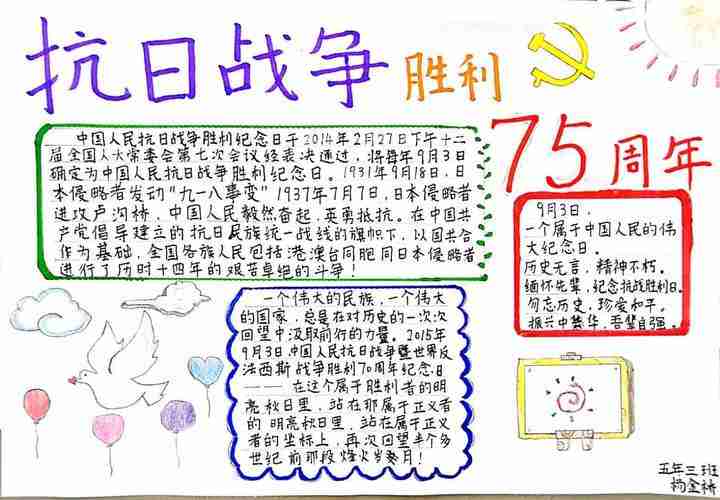 抗日战争胜利
75周年
中国人民抗日战争胜利纪念日于2014年2月27日下午十二
届全国人大常委会第七次会议经表决通过，将每年9月3日
确定为中国人民抗日战争胜利纪念日。1931年9月18日，日
本侵略者发动“九一八事变”1937年7月7日，日本侵略者
进攻卢沟桥，中国人民毅然奋起，英勇抵抗。在中国共
产党倡导建立的抗日民族统一战线的旗帜下，以国共合
作为基础，全国各族人民包括港澳台同胞同日本侵略者
进行了历时十四年的艰苦卓绝的斗争！
9月3日，
一个属于中国人民的伟
大纪念日。
历史无言，精神不朽。
缅怀先辈，纪念抗战胜利日。
勿忘历史，珍爱和平。
振兴中华，吾辈自强。
一个伟大的民族，一个伟大
的国家，总是在对历史的一次次
回望中汲取前行的力量。2015年
9月3日，中国人民抗日战争暨世界反
法西斯战争胜利70周年纪念日
—— 在这个属于胜利者的明
亮秋日里，站在那属于正义者
的明亮秋日里，站在属于正义
者的坐标上，再次回望半个多
世纪前那段烽火岁月！
五年三班
杨金